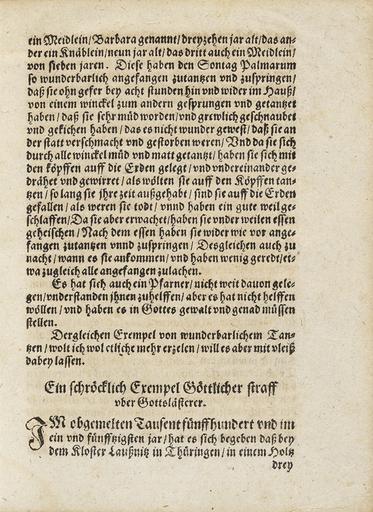 ein Meidlein/ Barbara genannt/ dreyzehen jar alt/ das an-
der ein Knäblein/ neun jar alt/ das dritt auch ein Meidlein/
von sieben jaren. Diese haben den Sontag Palmarum
so wunderbarlich angefangen zutantzen vnd zuspringen/
daß sie ohn gefer bey acht stunden hin vnd wider im Hauß/
von einem winckel zum andern gesprungen vnd getantzet
haben/ daß sie sehr müd worden/ vnd grewlich geschnaubet
vnd gekichen haben/ das es nicht wunder gewest/ daß sie an
der statt verschmacht vnd gestorben weren/ Vnd da sie sich
durch alle winckel müd vnd matt getantzt/ haben sie sich mit
den köpffen auff die Erden gelegt/ vnd vndereinander ge-
drähet vnd gewirret/ als wölten sie auff den Köpffen tan-
tzen/ so lang sie ihre zeit außgehabt/ sind sie auff die Erden
gefallen/ als weren sie todt/ vnnd haben ein gute weil ge-
schlaffen/ Da sie aber erwachet/ haben sie vnder weilen essen
geheischen/ Nach dem essen haben sie wider wie vor ange-
fangen zutantzen vnnd zuspringen/ Desgleichen auch zu
nacht/ wann es sie ankommen/ vnd haben wenig geredt/ et-
wa zugleich alle angefangen zulachen.
Es hat sich auch ein Pfarner/ nicht weit dauon gele-
gen/ vnderstanden jhnen zuhelffen/ aber es hat nicht helffen
wöllen/ vnd haben es in Gottes gewalt vnd genad müssen
stellen.
Dergleichen Exempel von wunderbarlichem Tan-
tzen/ wolt ich wol etliche mehr erzelen/ will es aber mit vleiß
dabey lassen.
Ein schröcklich Exempel Göttlicher straff
vber Gottslästerer.
IM obgemelten Tausent fünffhundert vnd im
ein vnd fünfftzigsten jar/ hat es sich begeben daß bey
dem Kloster Laußnitz in Thüringen/ in einem Holtz
drey